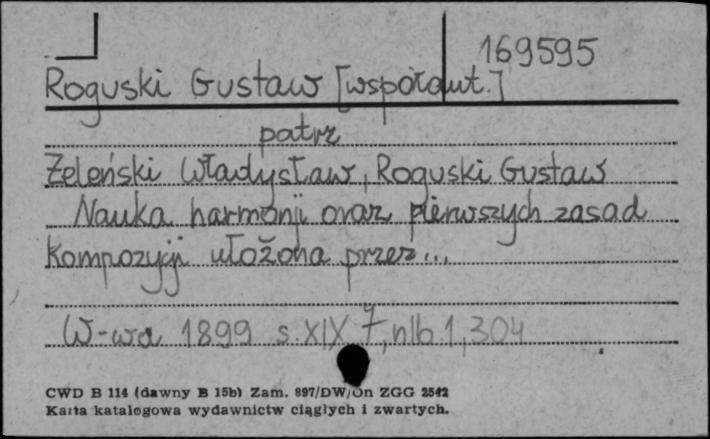 169595
Roguski Gustaw [współaut.]
patrz
Żeleński Władysław, Roguski Gustaw
Nauka harmonji oraz pierwszych zasad
kompozycji ułożona przez...
W-wa 1899 s. XIX, nlb. 1, 304
CWD B 114 (dawny B 15b) Zam. 897/DW/On ZGG 2542
Karta katalogowa wydawnictw ciągłych i zwartych.